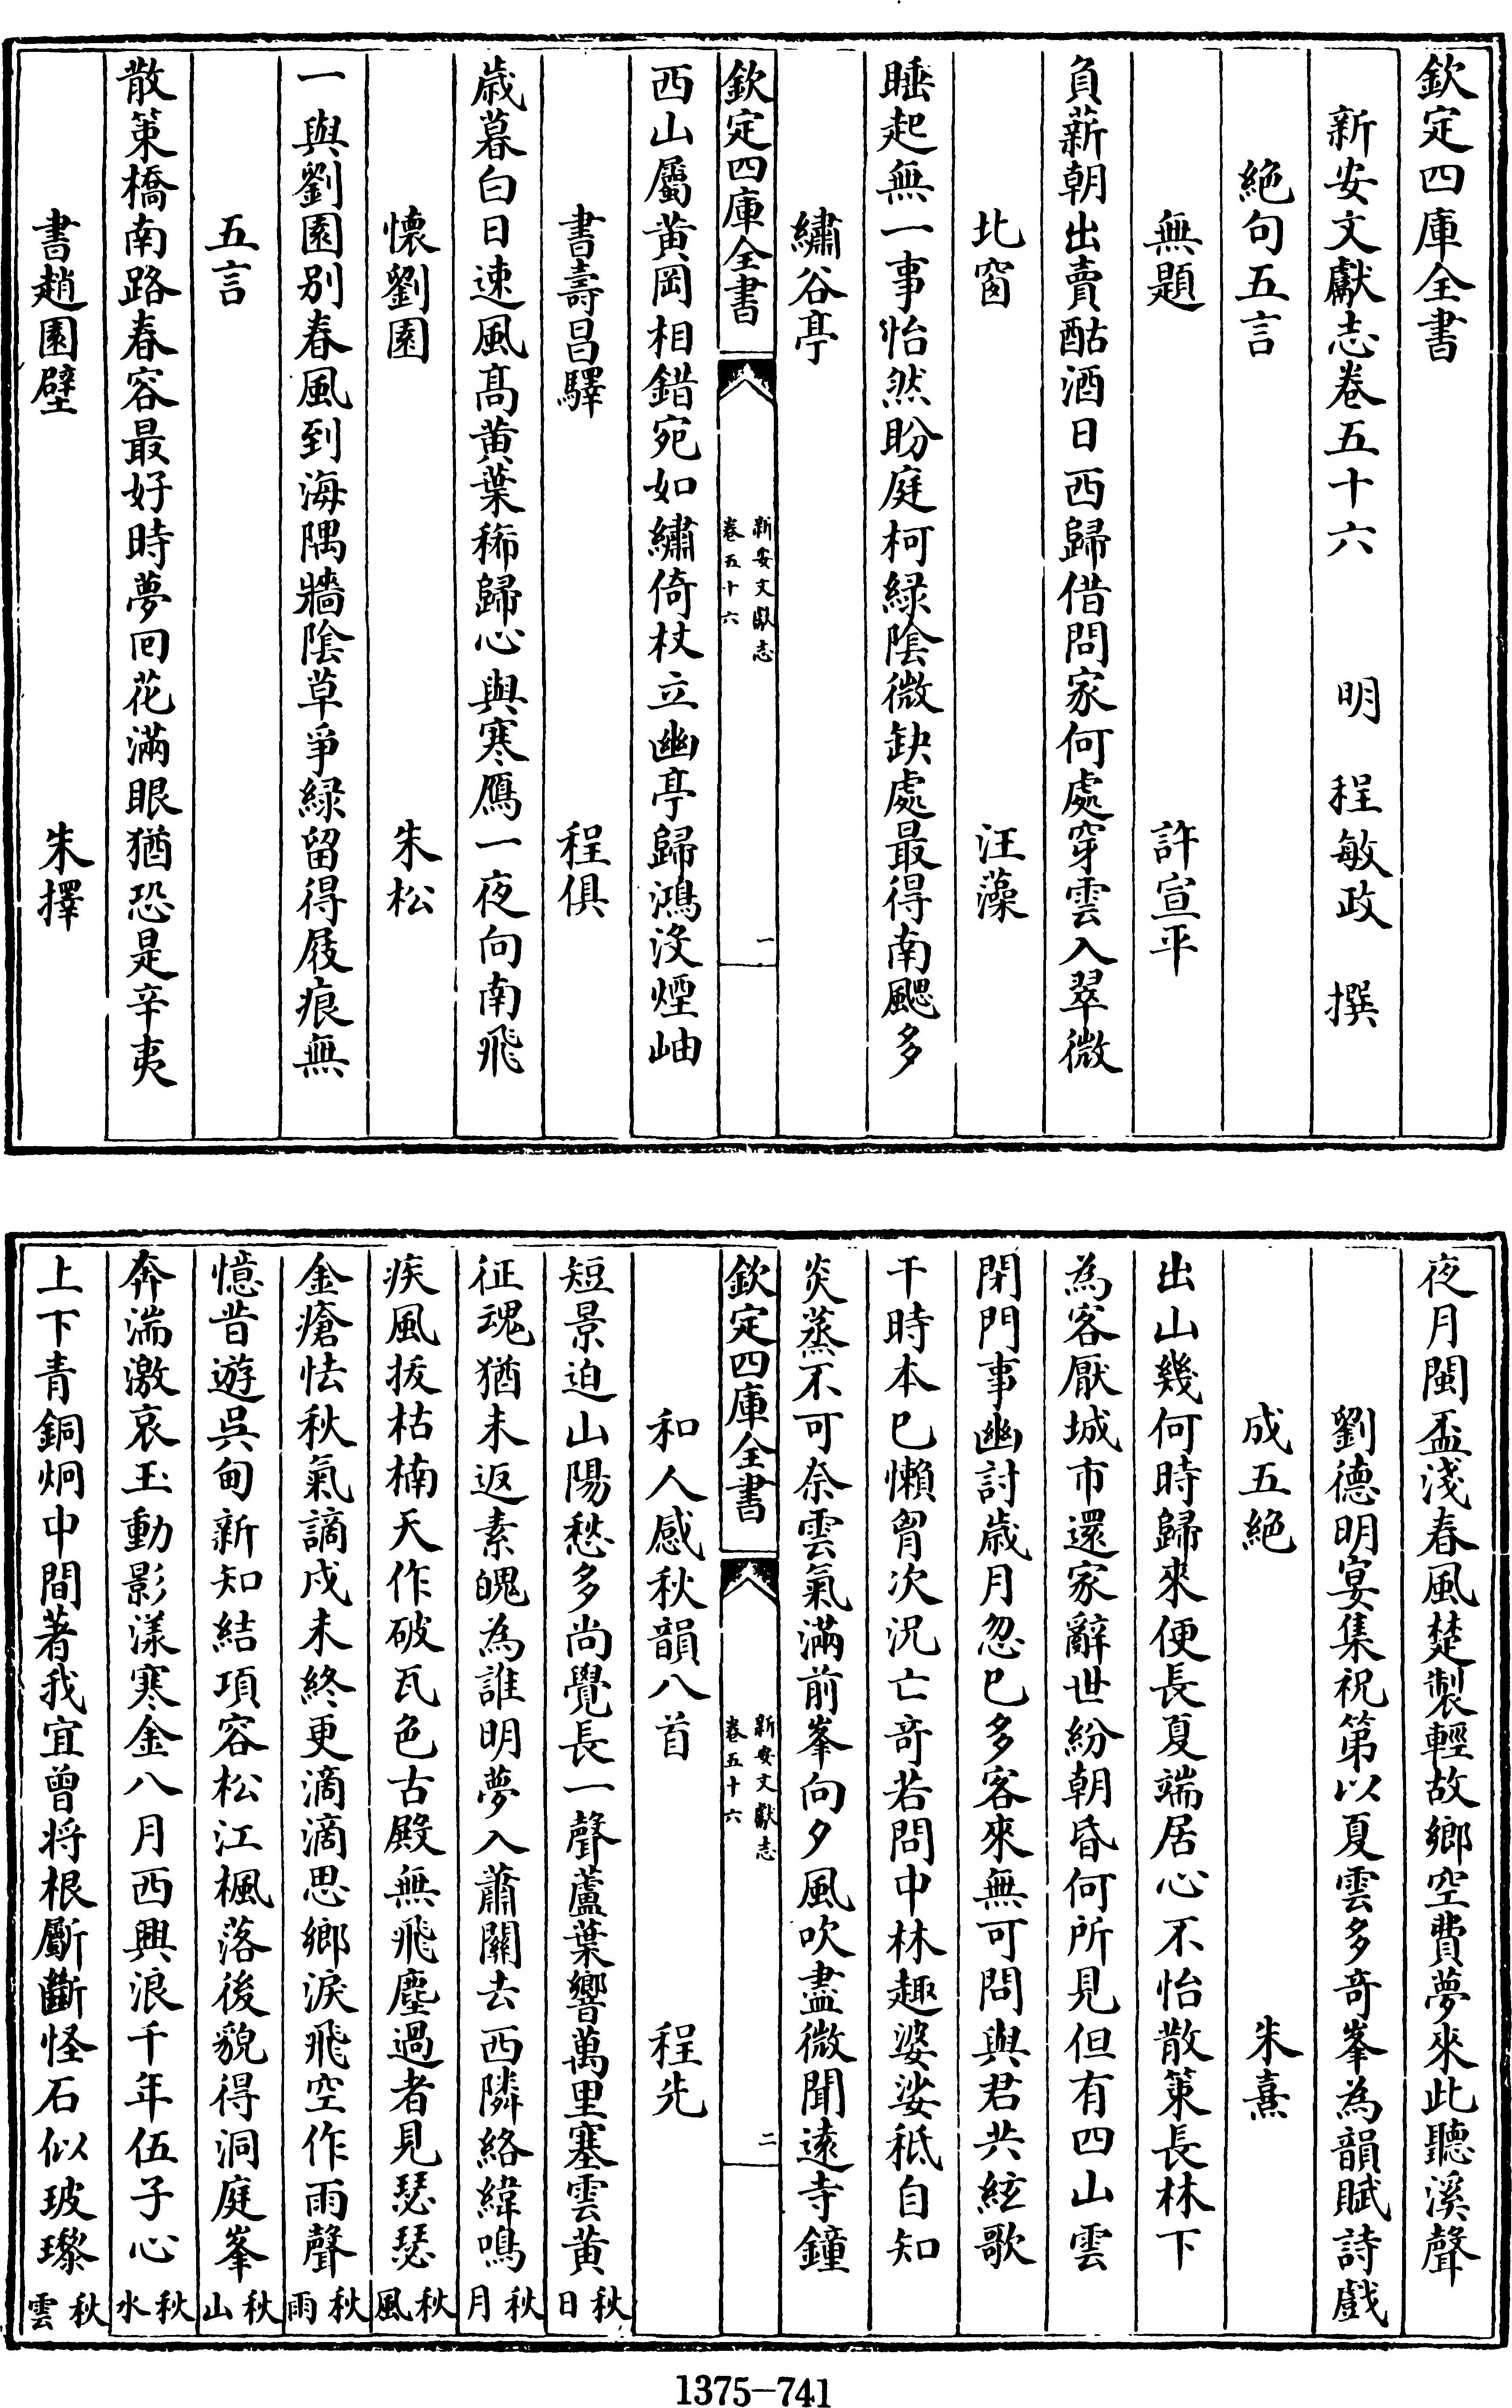 欽定四庫全書
新安文獻志卷五十六　明　程敏政　撰
絶句五言
無題　許宣平
負薪朝出賣酤酒日西歸借問家何處穿雲入翠微
北窗　汪藻
睡起無一事怡然盼庭柯緑陰微缺處最得南颸多
繡谷亭
欽定四庫全書
新安文獻志
卷五十六
一
西山屬黄岡相錯宛如繡倚杖立幽亭歸鴻没煙岫
書壽昌驛　程俱
歳暮白日速風髙黄葉稀歸心與寒鴈一夜向南飛
懷劉園　朱松
一與劉園别春風到海隅牆陰草爭緑留得屐痕無
五言
散策橋南路春容最好時夢回花滿眼猶恐是辛夷
書趙園壁　朱擇
夜月閩盃淺春風楚製輕故鄉空費夢來此聽溪聲
劉德明宴集祝第以夏雲多奇峯為韻賦詩戲
成五絶　朱熹
出山幾何時歸來便長夏端居心不怡散策長林下
為客厭城市還家辭世紛朝昏何所見但有四山雲
閉門事幽討歳月忽已多客來無可問與君共絃歌
干時本已懶胷次況亡竒若問中林趣婆娑秪自知
炎蒸不可奈雲氣滿前峯向夕風吹盡微聞遠寺鐘
欽定四庫全書
新安文獻志
卷五十六
二
和人感秋韻八首　程先
短景迫山陽愁多尚覺長一聲蘆葉響萬里塞雲黄秋日
征魂猶未返素魄為誰明夢入蕭關去西隣絡緯鳴秋月
疾風拔枯楠天作破瓦色古殿無飛塵過者見瑟瑟秋風
金瘡怯秋氣謫戍未終更滴滴思鄉淚飛空作雨聲秋雨
憶昔遊吳甸新知結項容松江楓落後貌得洞庭峯秋山
奔湍激哀玉動影漾寒金八月西興浪千年伍子心秋水
上下青銅炯中間著我宜曾将根斸斷怪石似玻瓈秋雲
1375-741